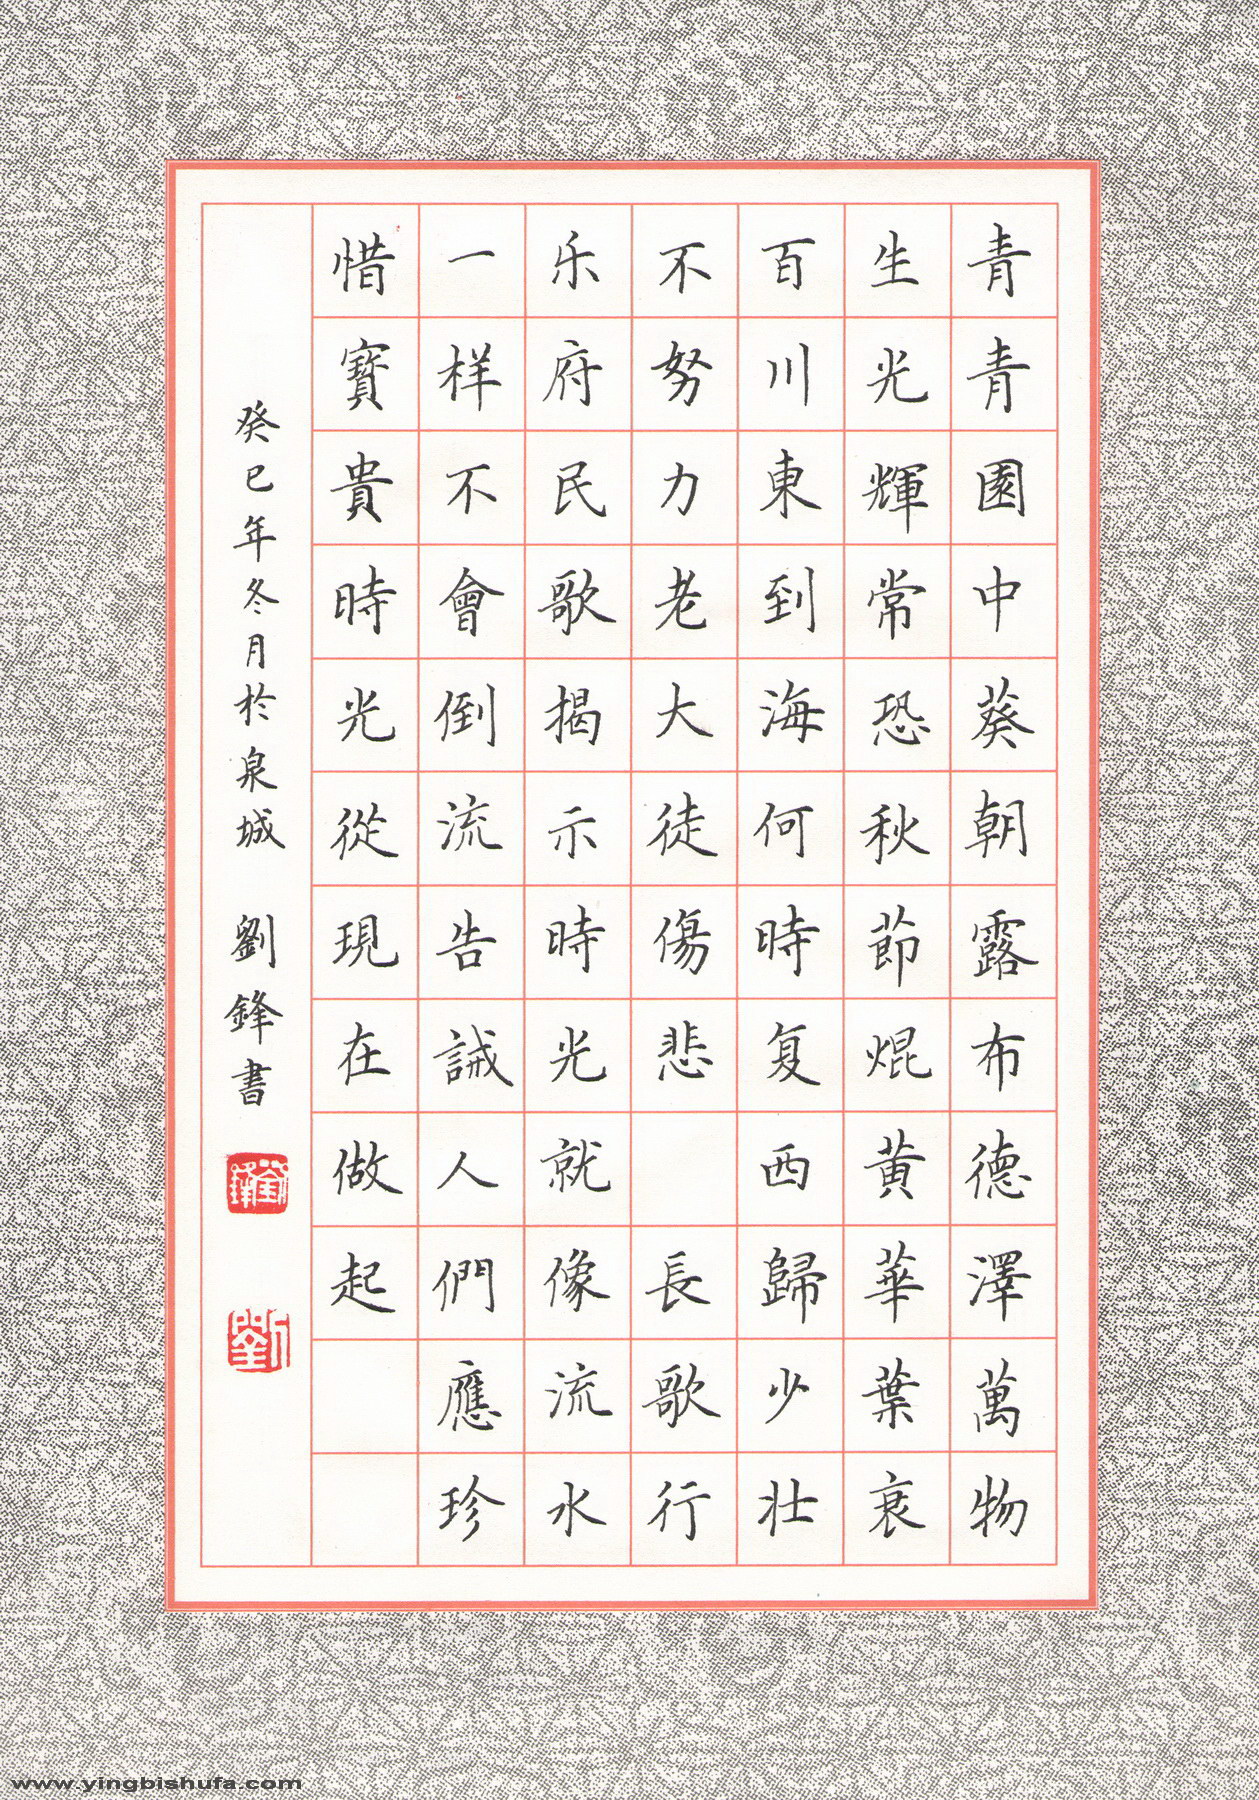 青青園中葵朝露布德澤萬物
生光輝常恐秋節焜黃華葉衰
百川東到海何時复西歸少壮
不努力老大徒傷悲 長歌行
乐府民歌揭示時光就像流水
一样不會倒流告誡人們應珍
惜寶貴時光從現在做起
癸巳年冬月於泉城 劉鋒書
劉鋒
劉
www.yingbishufa.com